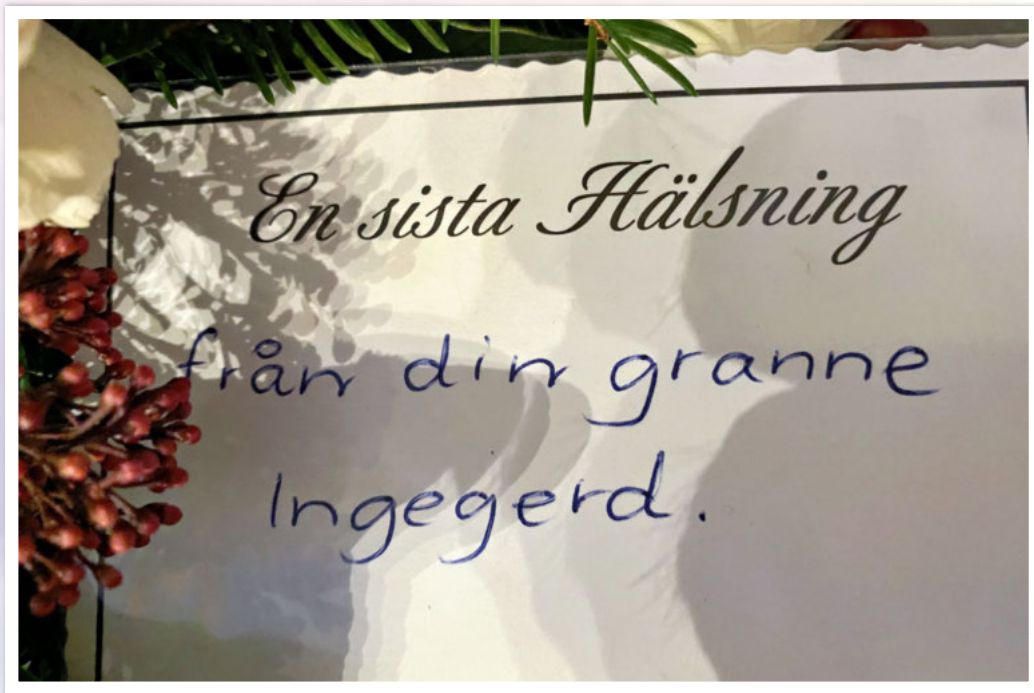 En sista Hälsning
från din granne
Ingegerd.